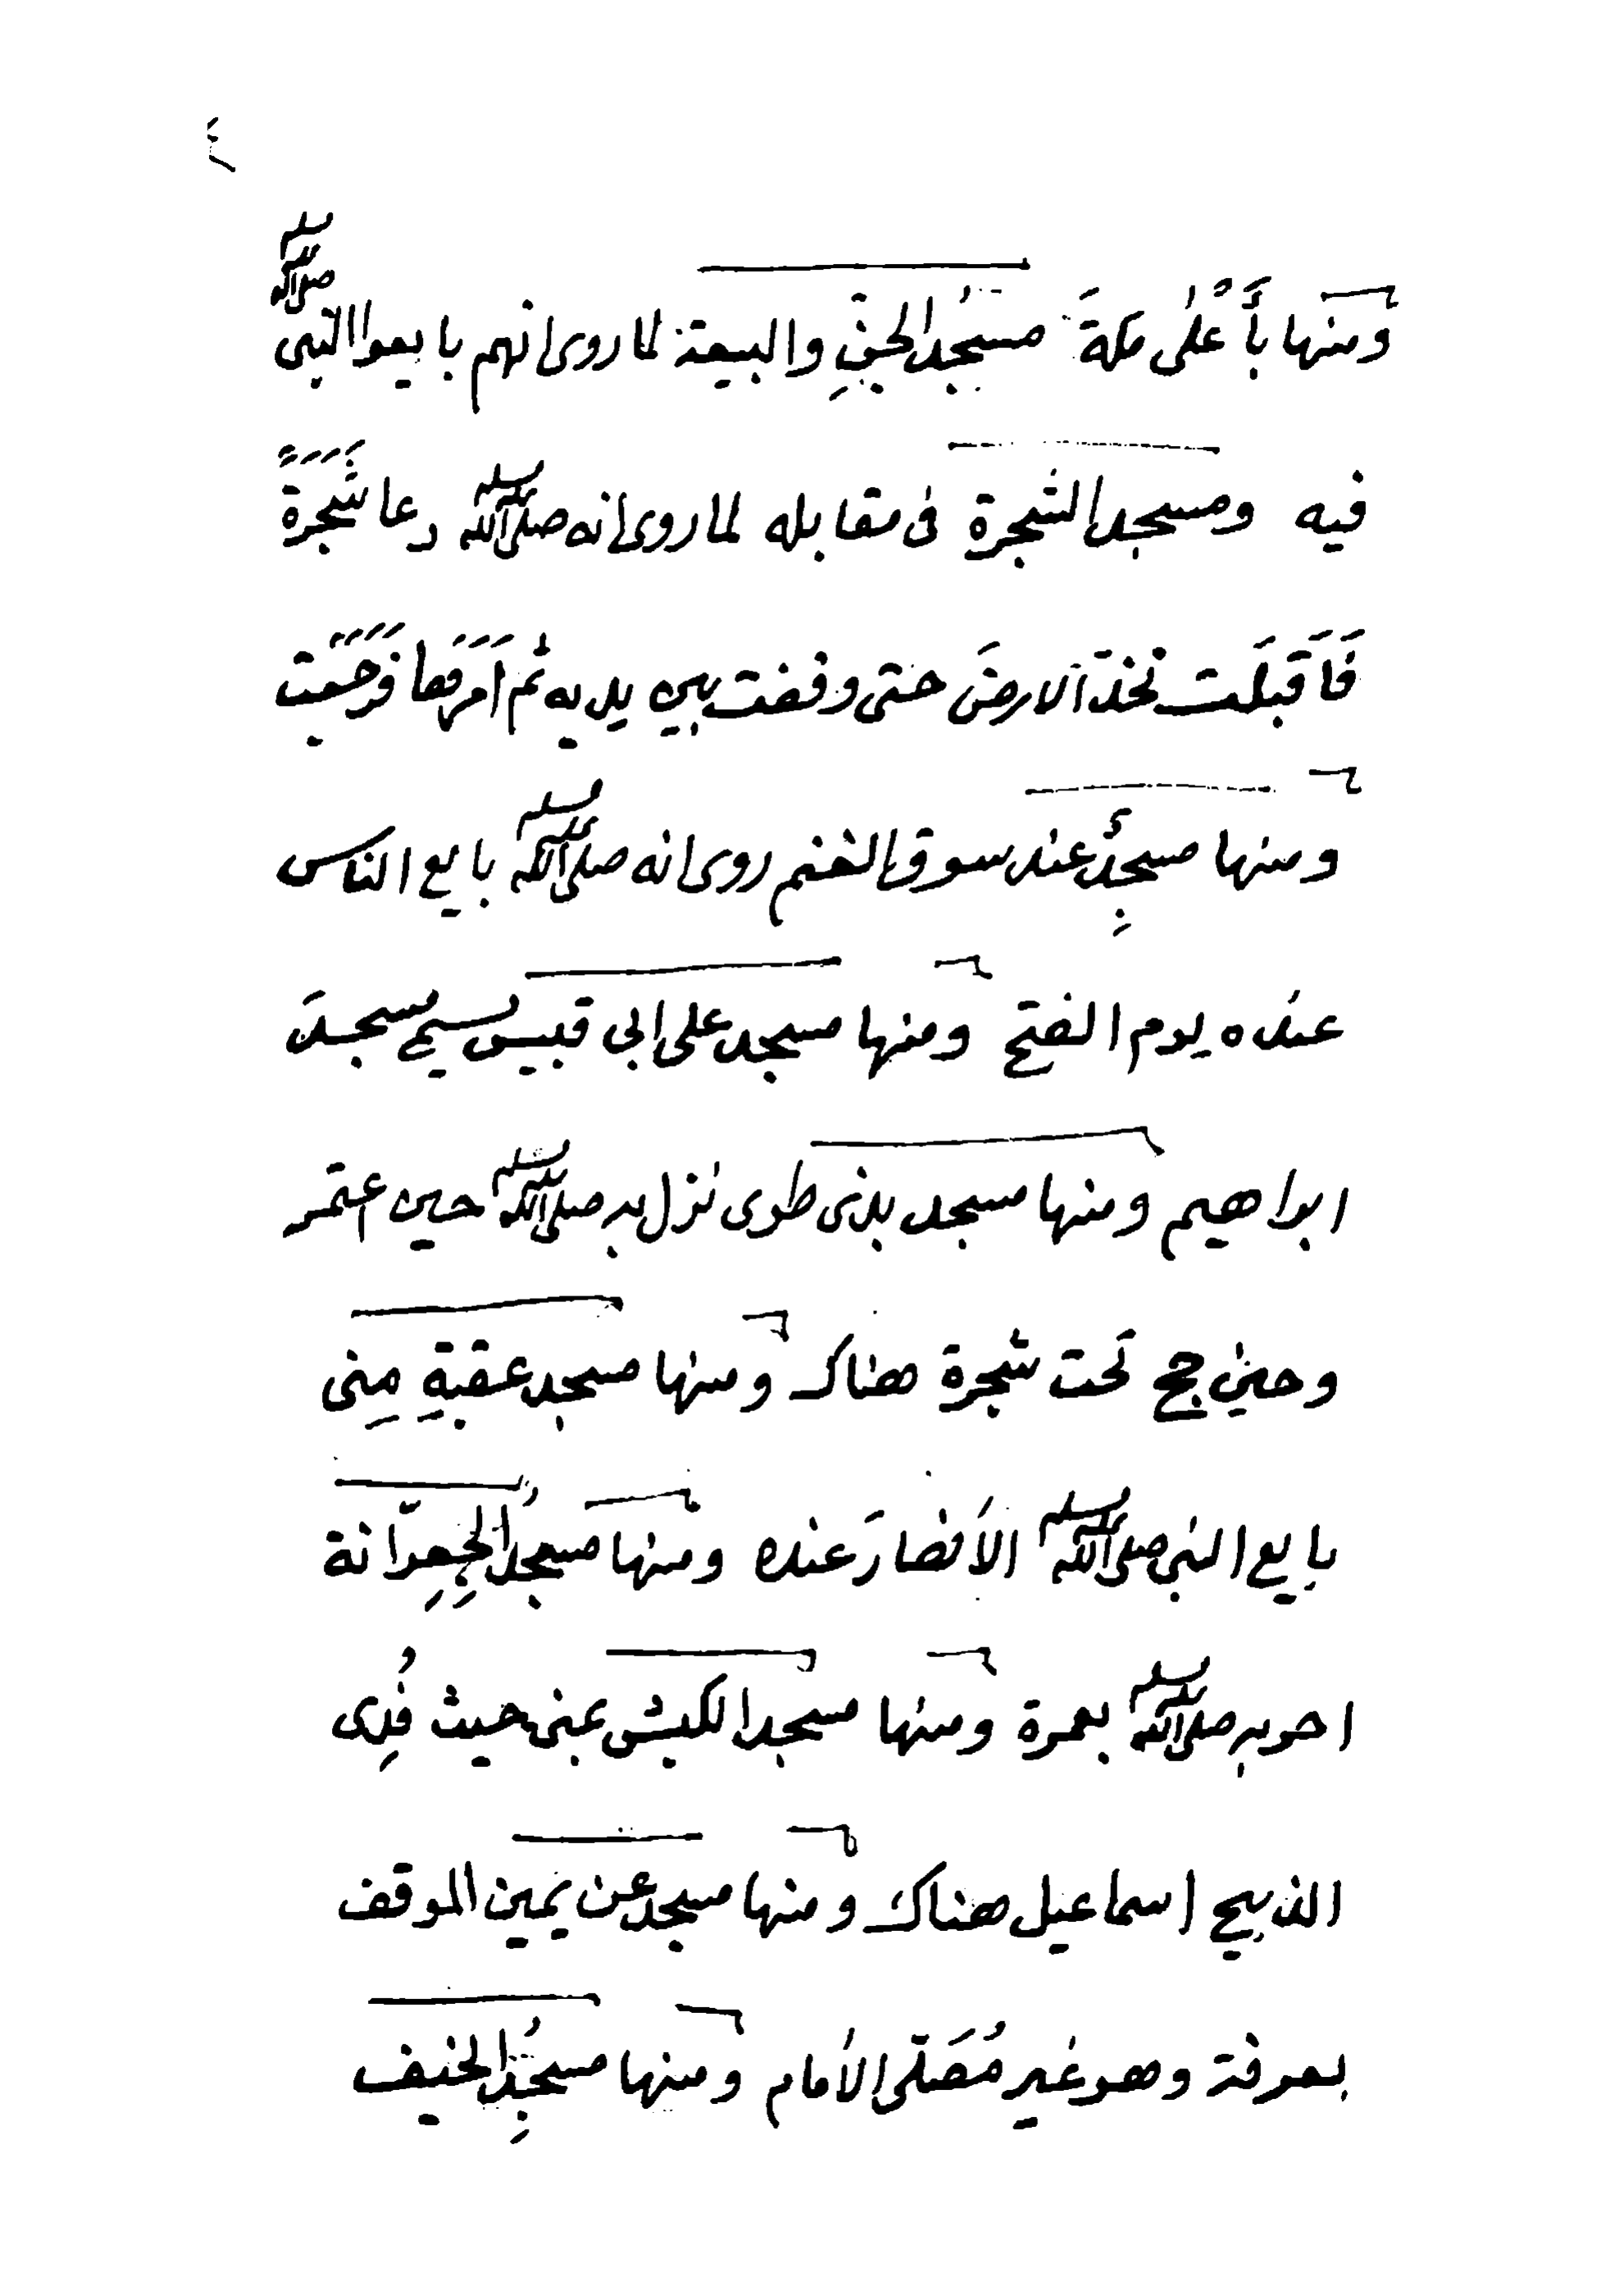 ومنها بأَعْلى مكةَ مسجدُ الجنِّ والبيعة لما روى انهم بايعوا النبى صلى الله عليه وسلم
فيه ومسجد الشجرة فى مقابله لما روى انه صلى الله عليه وسلم دعا شَجَرَةً
فَاَقبَلَت تخدّ الارضَ حتى وقفت بين يديه ثم اَمَرَها فَرَجَعَت
ومنها مسجِدٌ عند سوق الغنم روى انه صلى الله عليه وسلم بايع الناس
عنده يوم الفتح ومنها مسجد على ابى قبيس يسمى مسجدَ
ابراهيم ومنها مسجد بذى طوى نزل به صلى الله عليه وسلم حين اعتمر
وحين حج تحت شجرة هناك ومنها مسجد عقبةِ مِنى
بايع النبى صلى الله عليه وسلم الأنصارَ عنده ومنها مسجدُ الجِعِرّانة
احرم به صلى الله عليه وسلم بعمرة ومنها مسجد الكبش بمنى حيث فُدِى
الذبيح اسماعيل هناك ومنها مسجد عن يمين الموقف
بعرفة وهو غير مُصَلّى الأمام ومنها مسجِدُ الخيف